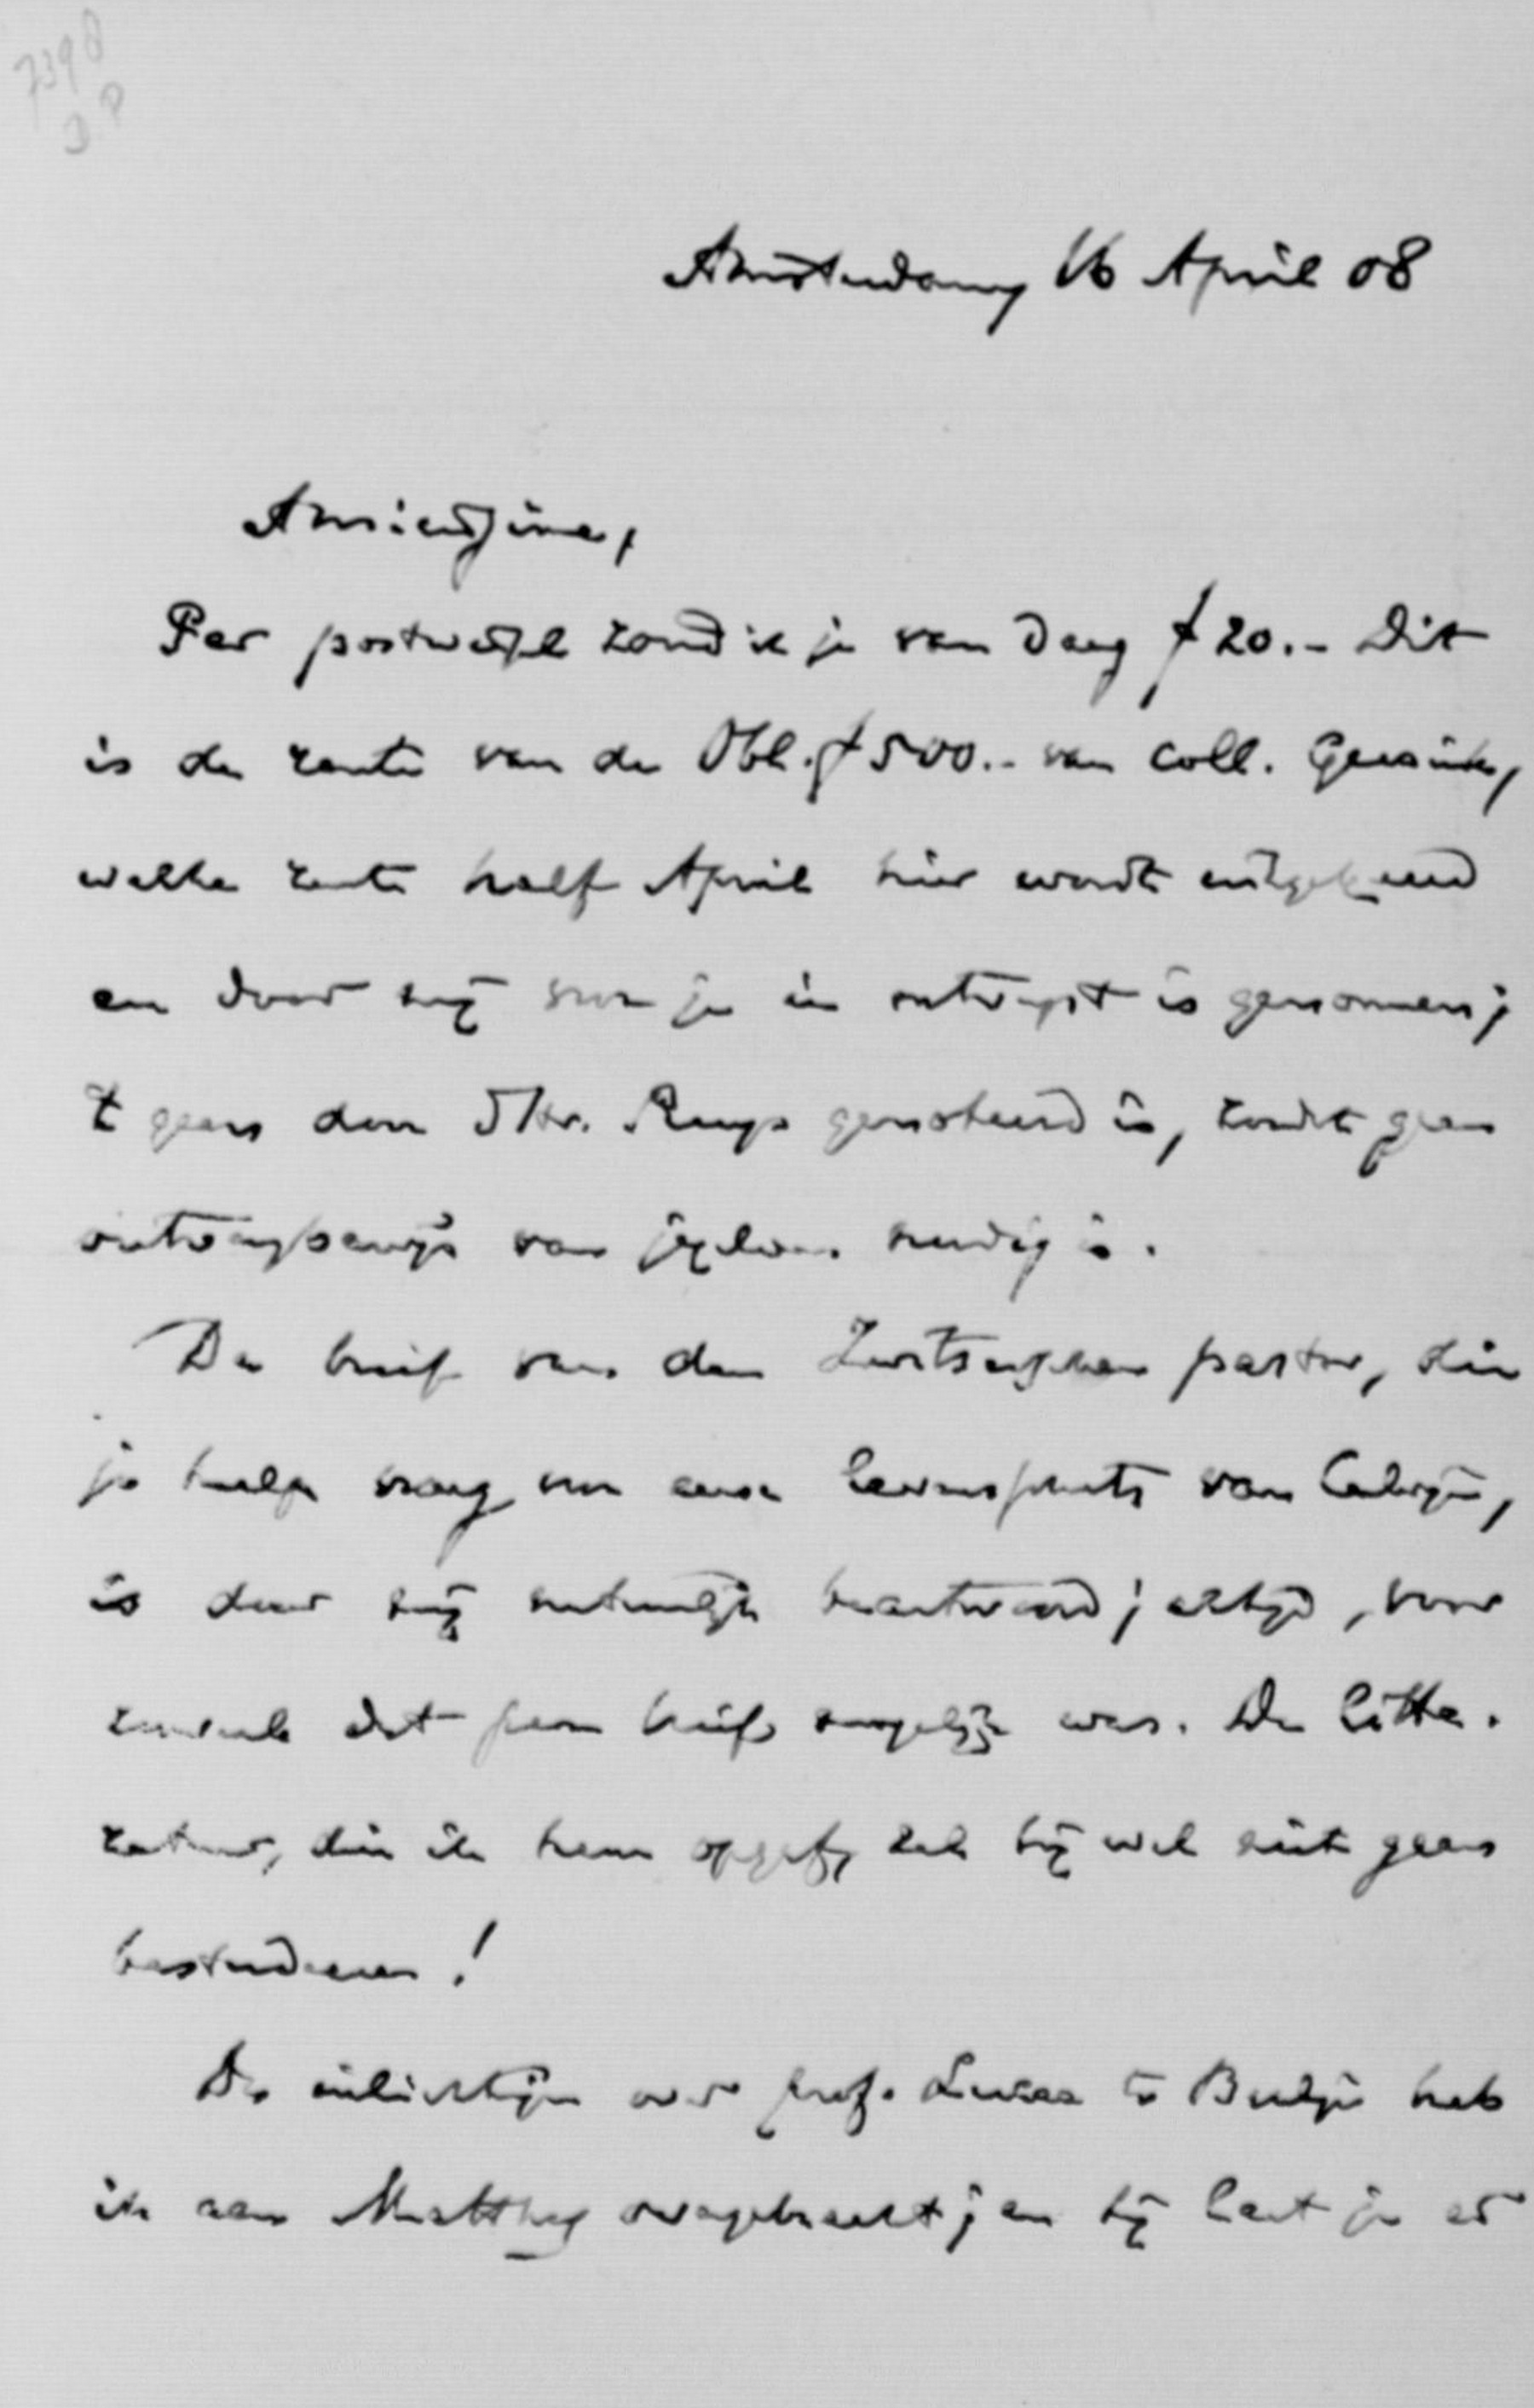 7398
Amsterdam 16 April 08
Amicissime,
Per postwissel zond ik je van daag ƒ 20.- Dit
is de rente van de Obl. ƒ 500.- van coll. Geesink,
welke rente half April hier wordt uitgekeerd
en door mij voor je in ontvangst is genomen;
't geen den Hr. Ruys genoteerd is, zoodat geen
ontvangbewijs van jou nodig is.
De brief van den Zwitserschen pastor, die
je hulp vraag voor eene levensschets van Calvijn,
is door mij natuurlijk beantwoord; altijd, voor
zooveel dat per brief mogelijk was. De litte-
ratuur, die ik hem opgaf, zal hij wel niet gaan
bestudeeren!
De inlichtingen over prof. Lucas te België heb
ik aan Matthes overgebracht; en hij laat je er